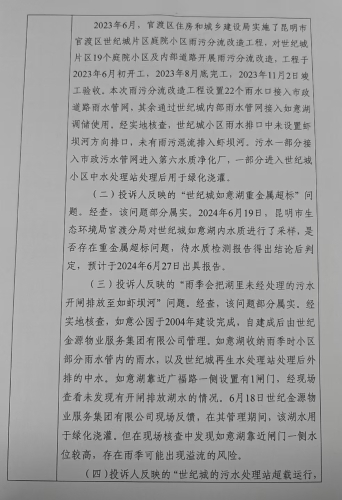 2023年6月，官渡区住房和城乡建设局实施了昆明市
官渡区世纪城片区庭院小区雨污分流改造工程，对世纪城
片区19个庭院小区及内部道路开展雨污分流改造，工程于
2023年6月初开工，2023年8月底完工，2023年11月2日竣
工验收。本次雨污分流改造工程设置22个雨水口接入市政
道路雨水管网，其余通过世纪城内部雨水管网接入如意湖
调储使用。经实地核查，世纪城小区雨水排口中未设置虾
坝河方向排口，未有雨污混流排入虾坝河。污水一部分接
入市政污水管网进入第六水质净化厂，一部分进入世纪城
小区中水处理站处理后用于绿化浇灌。
（二）投诉人反映的“世纪城如意湖重金属超标”问
题。经查，该问题部分属实。2024年6月19日，昆明市生
态环境局官渡分局对世纪城如意湖内水质进行了采样，是
否存在重金属超标问题，待水质检测报告得出结论后判
定，预计于2024年6月27日出具报告。
（三）投诉人反映的“雨季会把湖里未经处理的污水
开闸排放至如虾坝河”问题。经查，该问题部分属实。经
实地核查，如意公园于2004年建设完成，自建成后由世纪
金源物业服务集团有限公司管理。如意湖收纳雨季时小区
部分雨水管内的雨水，以及世纪城再生水处理站处理后外
排的中水。如意湖靠近广福路一侧设置有1闸门，经现场
查看未发现有开闸排放湖水的情况。6月18日世纪金源物
业服务集团有限公司现场反馈，在其管理期间，该湖水用
于绿化浇灌。但在现场核查中发现如意湖靠近闸门一侧水
位较高，存在雨季可能出现溢流的风险。
（四）投诉人反映的“世纪城的污水处理站超载运行，